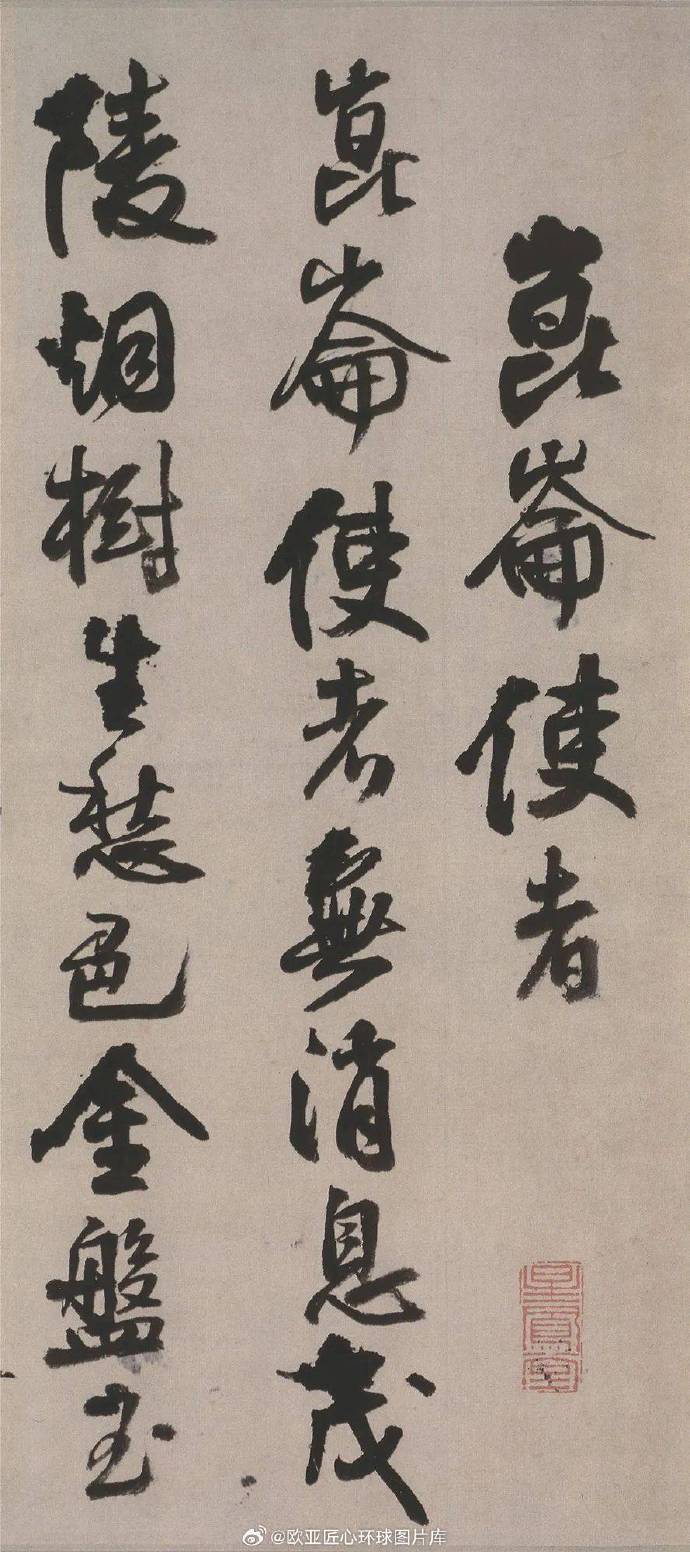 崑崙使者
崑崙使者無消息茂
陵烟樹生愁色金盤玉
@欧亚匠心环球图片库